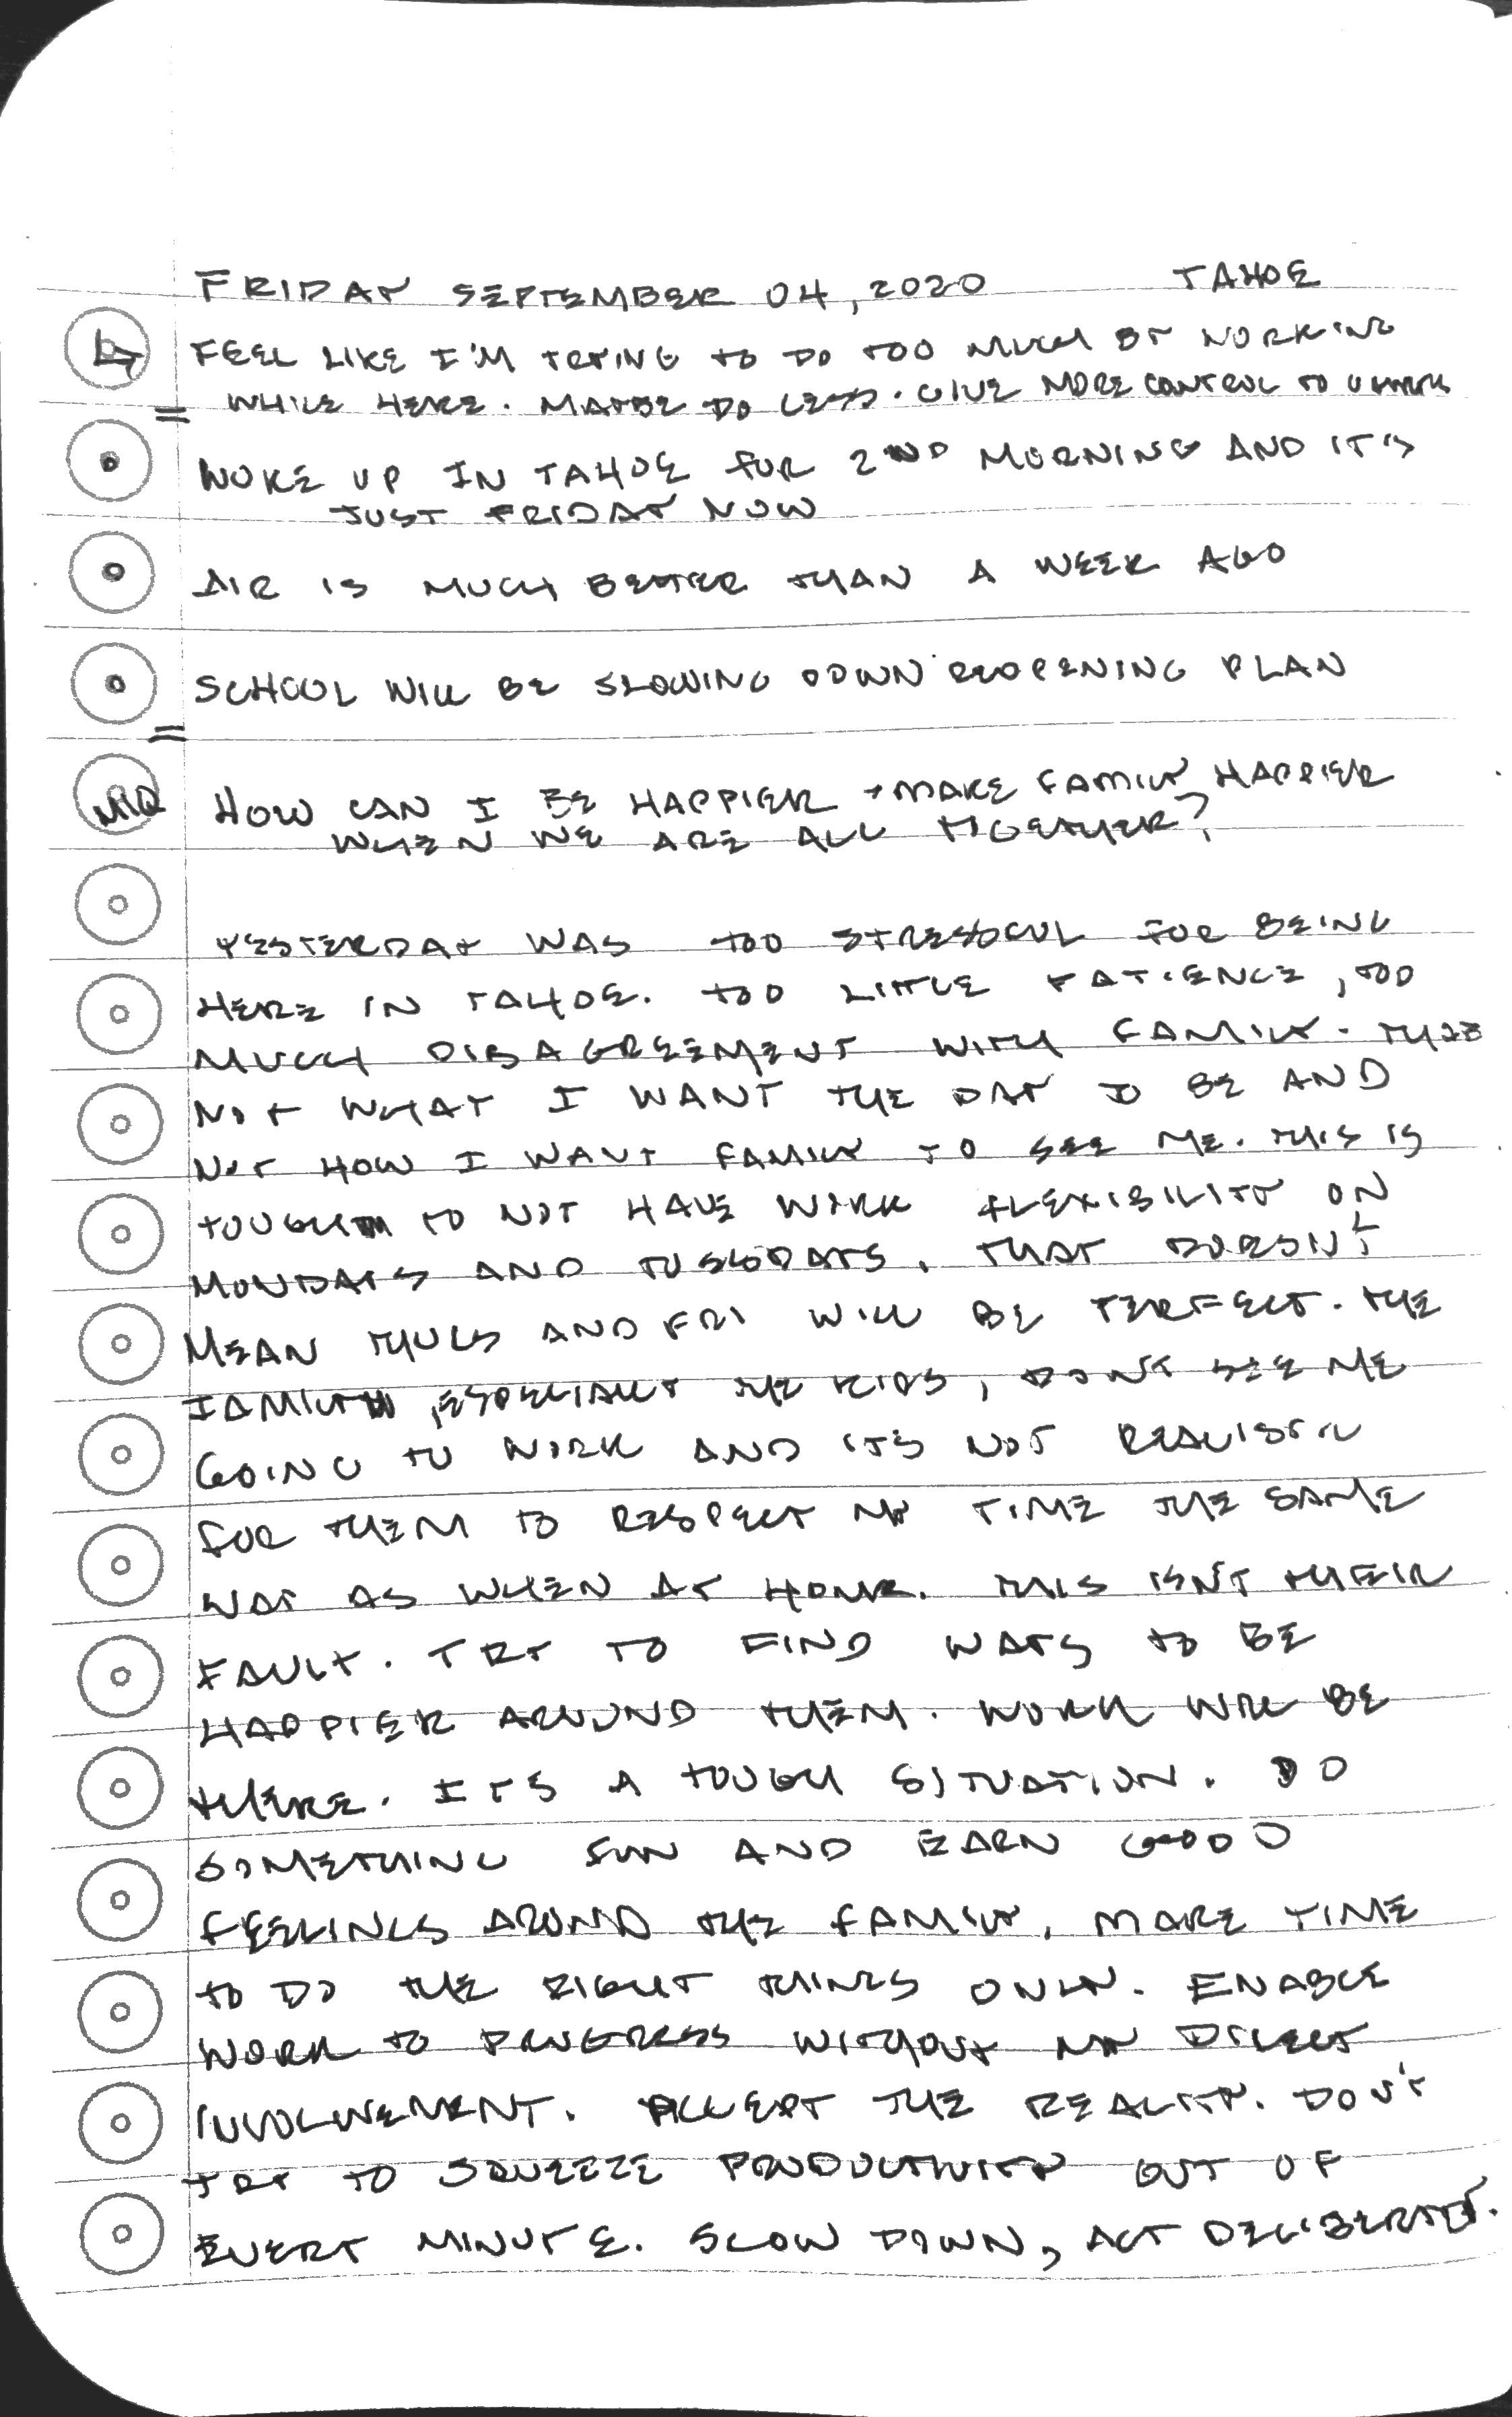 FRIDAY SEPTEMBER 04, 2020 TAHOE
FEEL LIKE I'M TRYING TO DO TOO MUCH BY WORKING
= WHILE HERE. MAYBE DO LESS. GIVE MORE CONTROL TO OTHERS
WOKE UP IN TAHOE FOR 2ND MORNING AND IT'S
JUST FRIDAY NOW
AIR IS MUCH BETTER THAN A WEEK AGO
SCHOOL WILL BE SLOWING DOWN REOPENING PLAN
=
HOW CAN I BE HAPPIER + MAKE FAMILY HAPPIER
WHEN WE ARE ALL TOGETHER?
YESTERDAY WAS TOO STRESSFUL FOR BEING
HERE IN TAHOE. TOO LITTLE PATIENCE, TOO
MUCH DISAGREEMENT WITH FAMILY. THAT'S
NOT WHAT I WANT THE DAY TO BE AND
NOT HOW I WANT FAMILY TO SEE ME. THIS IS
TOUGH TO NOT HAVE WORK FLEXIBILITY ON
MONDAYS AND TUESDAYS. THAT DOESN'T
MEAN THURS AND FRI WILL BE PERFECT. THE
FAMILY, ESPECIALLY THE KIDS, DON'T SEE ME
GOING TO WORK AND IT'S NOT REALISTIC
FOR THEM TO RESPECT MY TIME THE SAME
WAY AS WHEN AT HOME. THIS ISN'T THEIR
FAULT. TRY TO FIND WAYS TO BE
HAPPIER AROUND THEM. WORK WILL BE
THERE. ITS A TOUGH SITUATION. DO
SOMETHING FUN AND EARN GOOD
FEELINGS AROUND THE FAMILY, MAKE TIME
TO DO THE RIGHT THINGS ONLY. ENABLE
WORK TO PROGRESS WITHOUT MY DIRECT
INVOLVEMENT. ACCEPT THE REALITY. DON'T
TRY TO SQUEEZE PRODUCTIVITY OUT OF
EVERY MINUTE. SLOW DOWN, ACT DELIBERATELY.